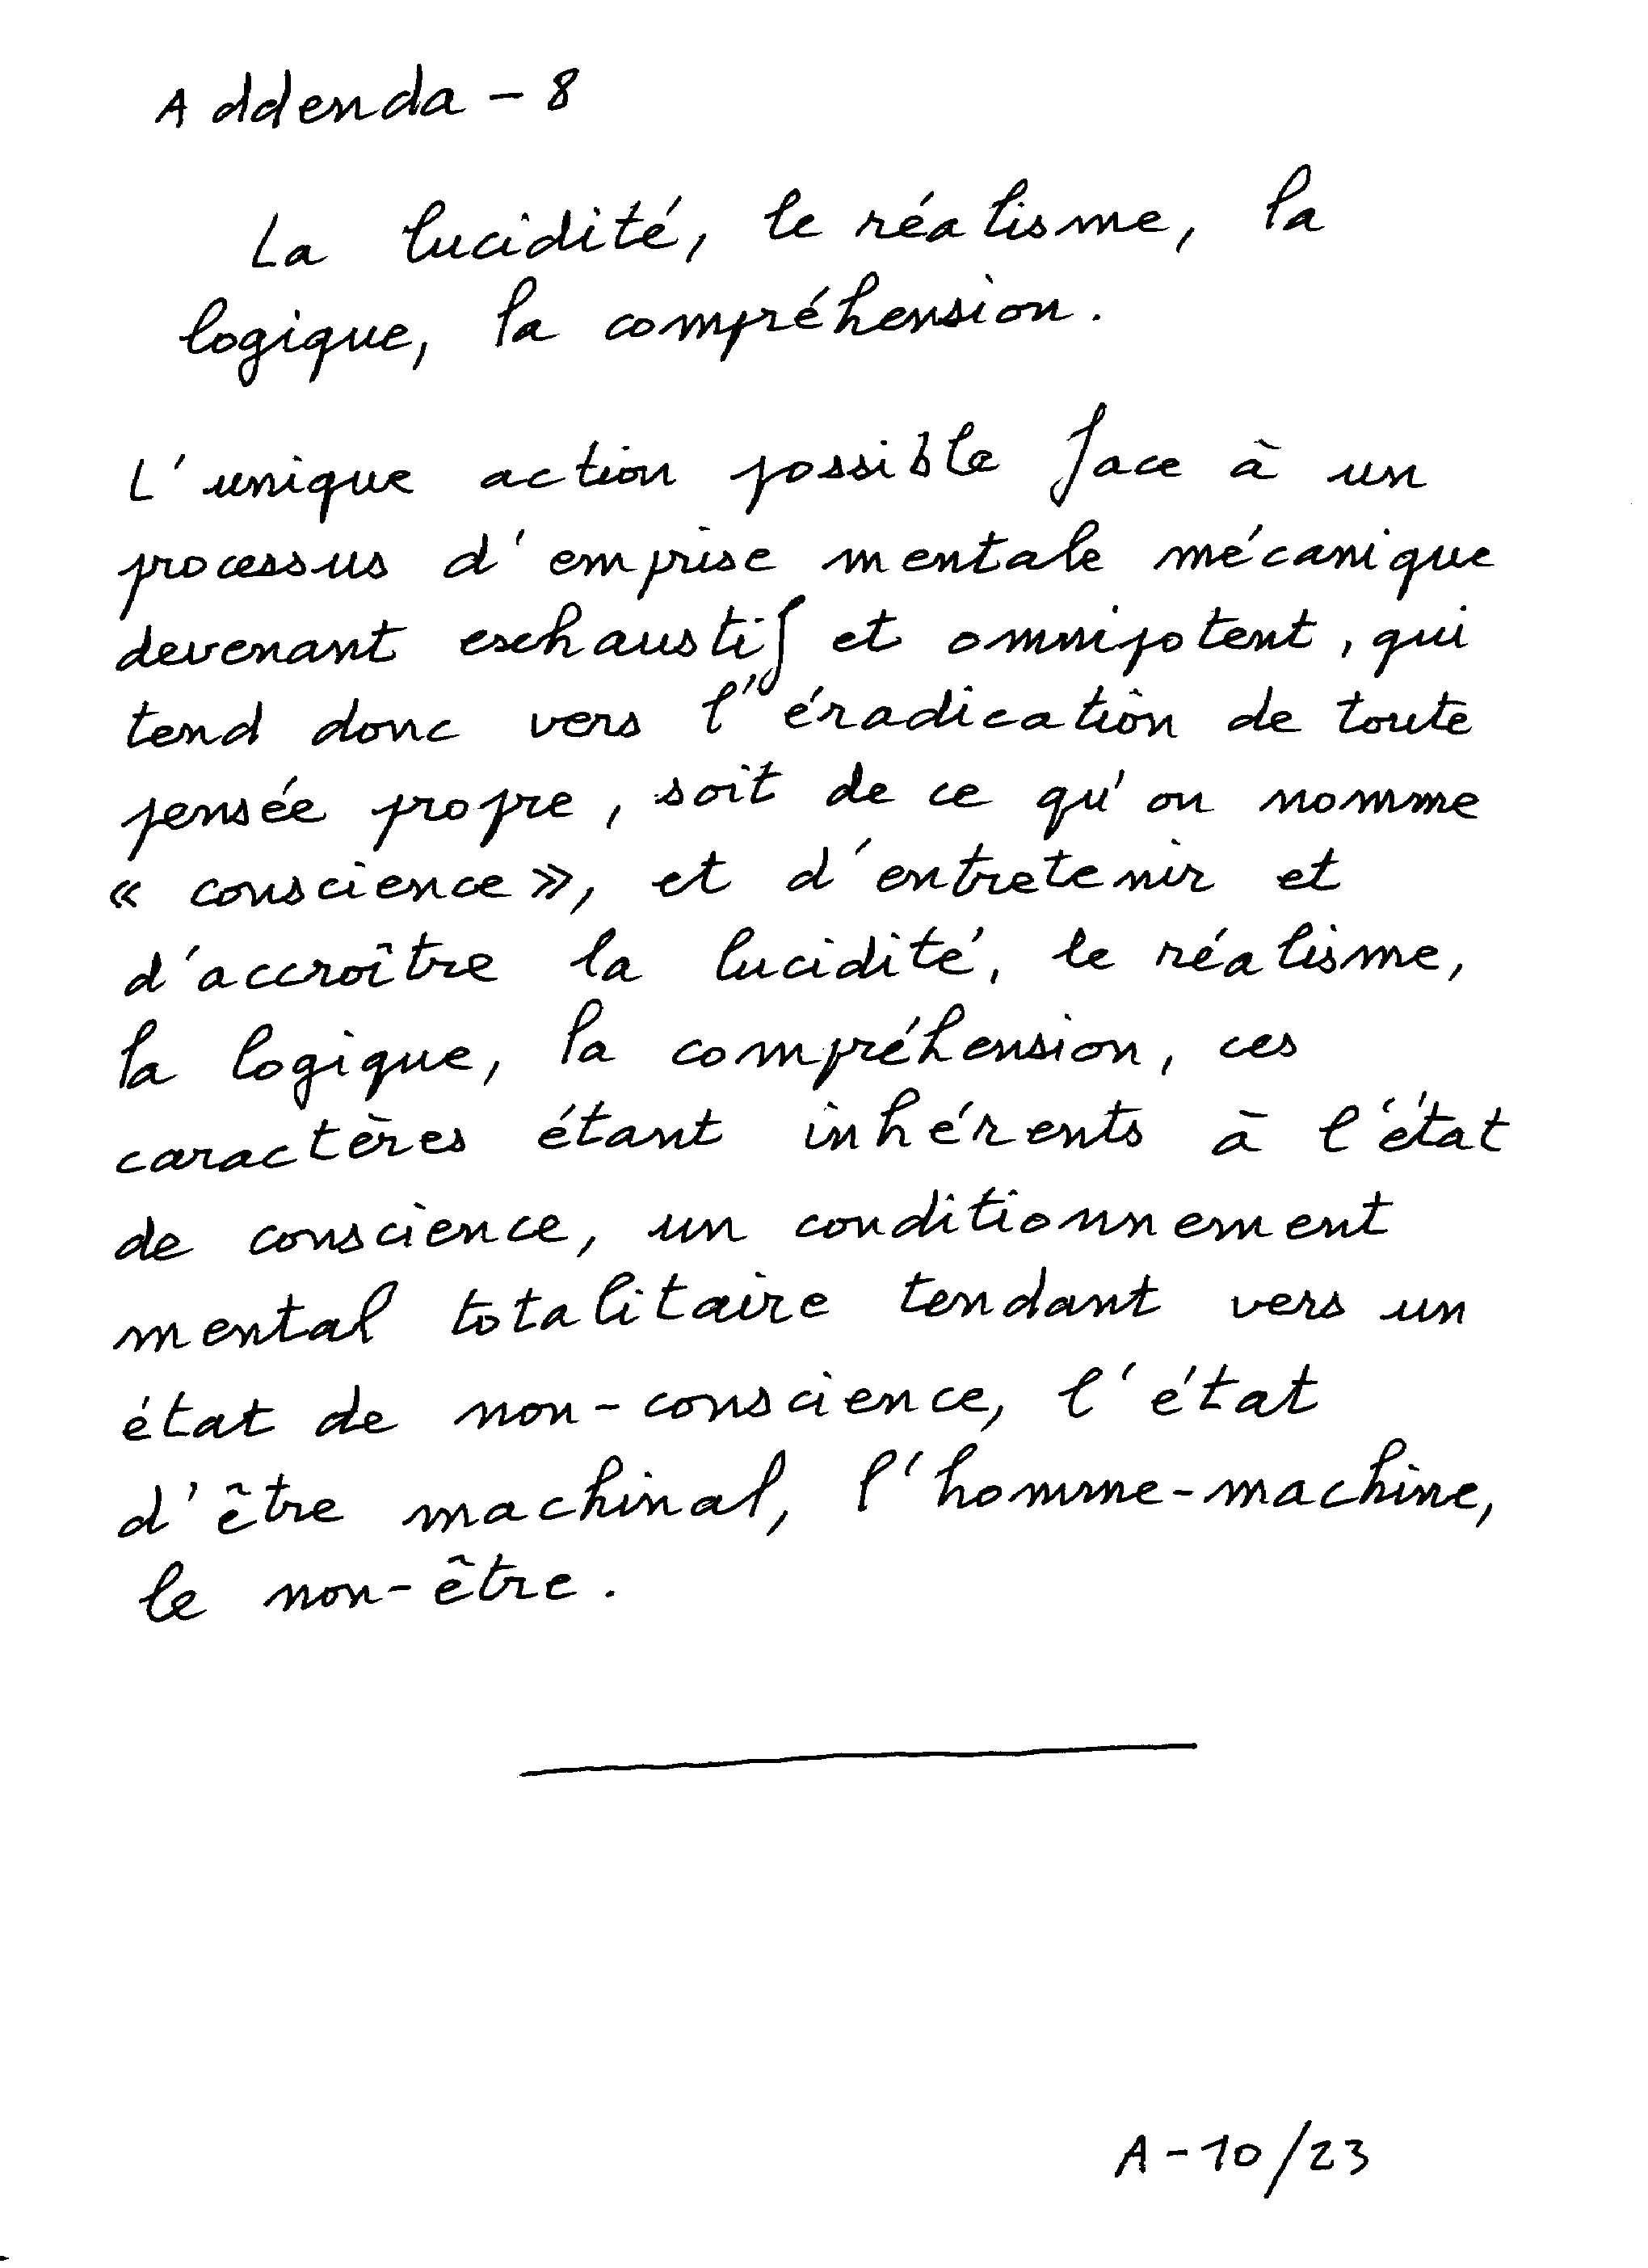 Addenda - 8
La lucidité, le réalisme, la
logique, la compréhension.
L'unique action possible face à un
processus d'emprise mentale mécanique
devenant exhaustif et omnipotent, qui
tend donc vers l'éradication de toute
pensée propre, soit de ce qu'on nomme
« conscience », et d'entretenir et
d'accroître la lucidité, le réalisme,
la logique, la compréhension, ces
caractères étant inhérents à l'état
de conscience, un conditionnement
mental totalitaire tendant vers un
état de non-conscience, l'état
d'être machinal, l'homme-machine,
le non-être.
A-10/23